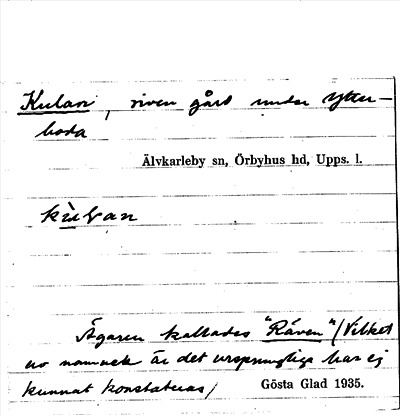 Kulan, riven gård under Ytter-
boda
Älvkarleby sn, Örbyhus hd, Upps. l.
Ägaren kallades "Räven" (Vilket
av namnen är det ursprungliga har ej
kunnat konstateras)
Gösta Glad 1935.